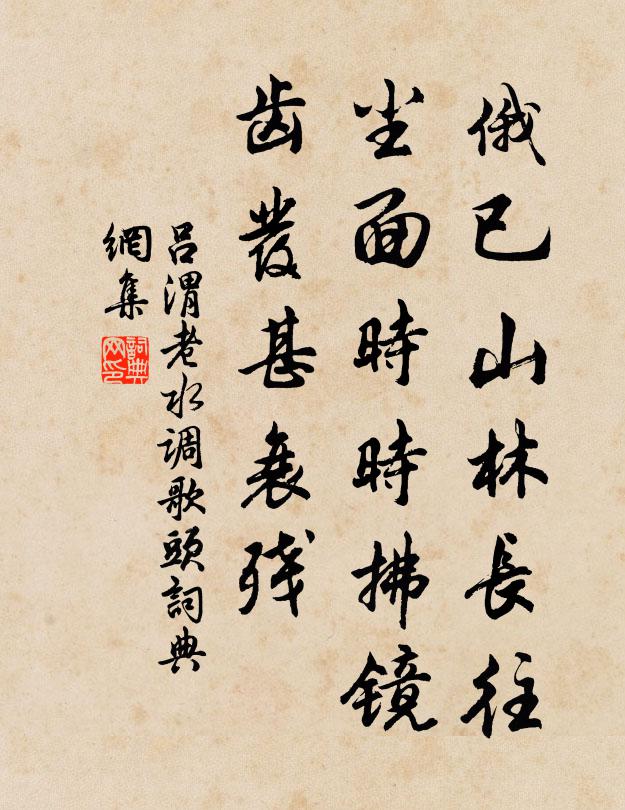 俄已山林長往
尘面時時拂镜
齿發甚衰残
吕渭老水调歌頭詞典
網集
詞典網印